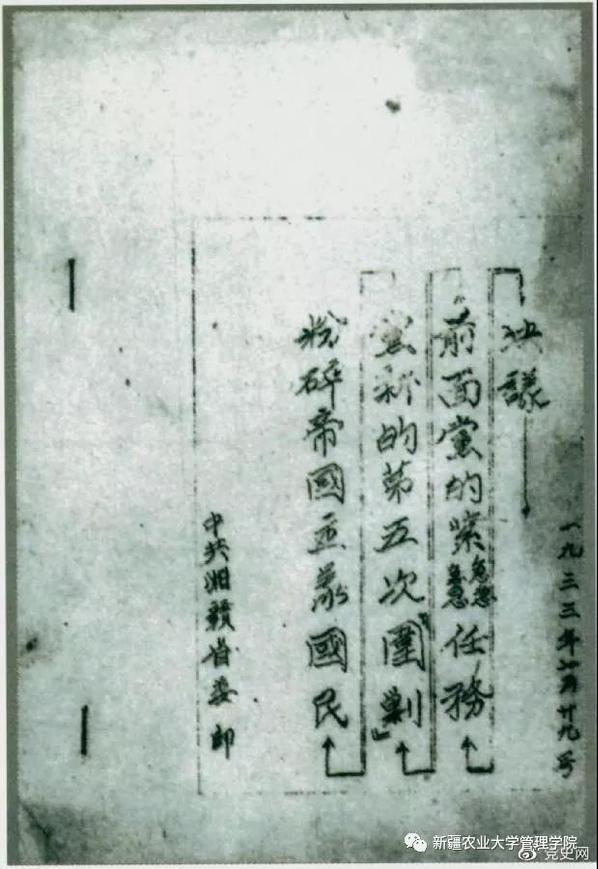 中共湘贛省委印
粉碎帝國主義國民
黨新的第五次"圍剿"
前面黨的緊急任務
決議
一九三三年七月廿九号
新疆农业大学管理学院
党史网